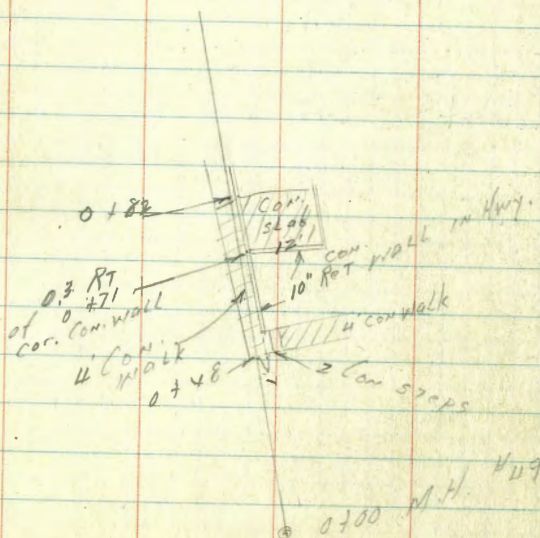 0 + 82
Con.
slab
12'
con.
10" Ret wall in Hwy.
0.3 RT
0 + 71
of cor. Con. wall
4' Con.
walk
4' con walk
0 + 48
2 Con steps
0+00 M.H. #49